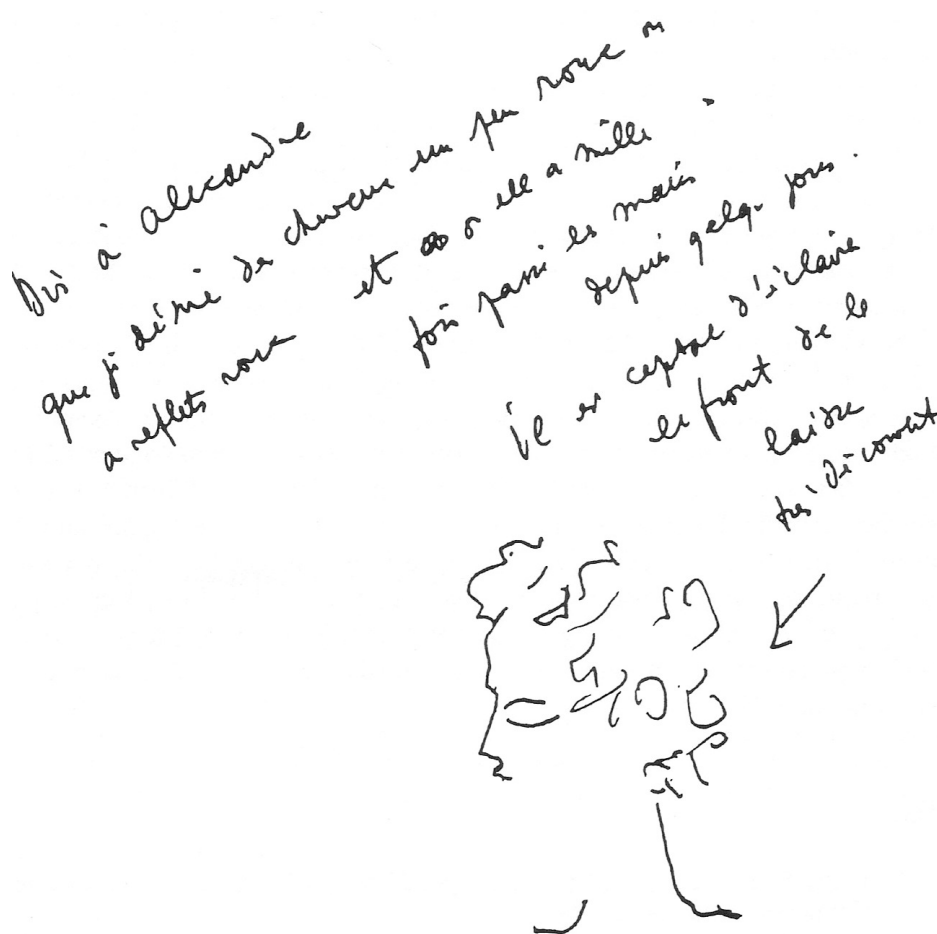 Dis à alexandre
que je désire des cheveux un peu roux ou
a reflets roux et ell a mille
fois passé les mains
depuis quelqu jours.
il es capital d'éclairé
le front de le
laisse
très découvert